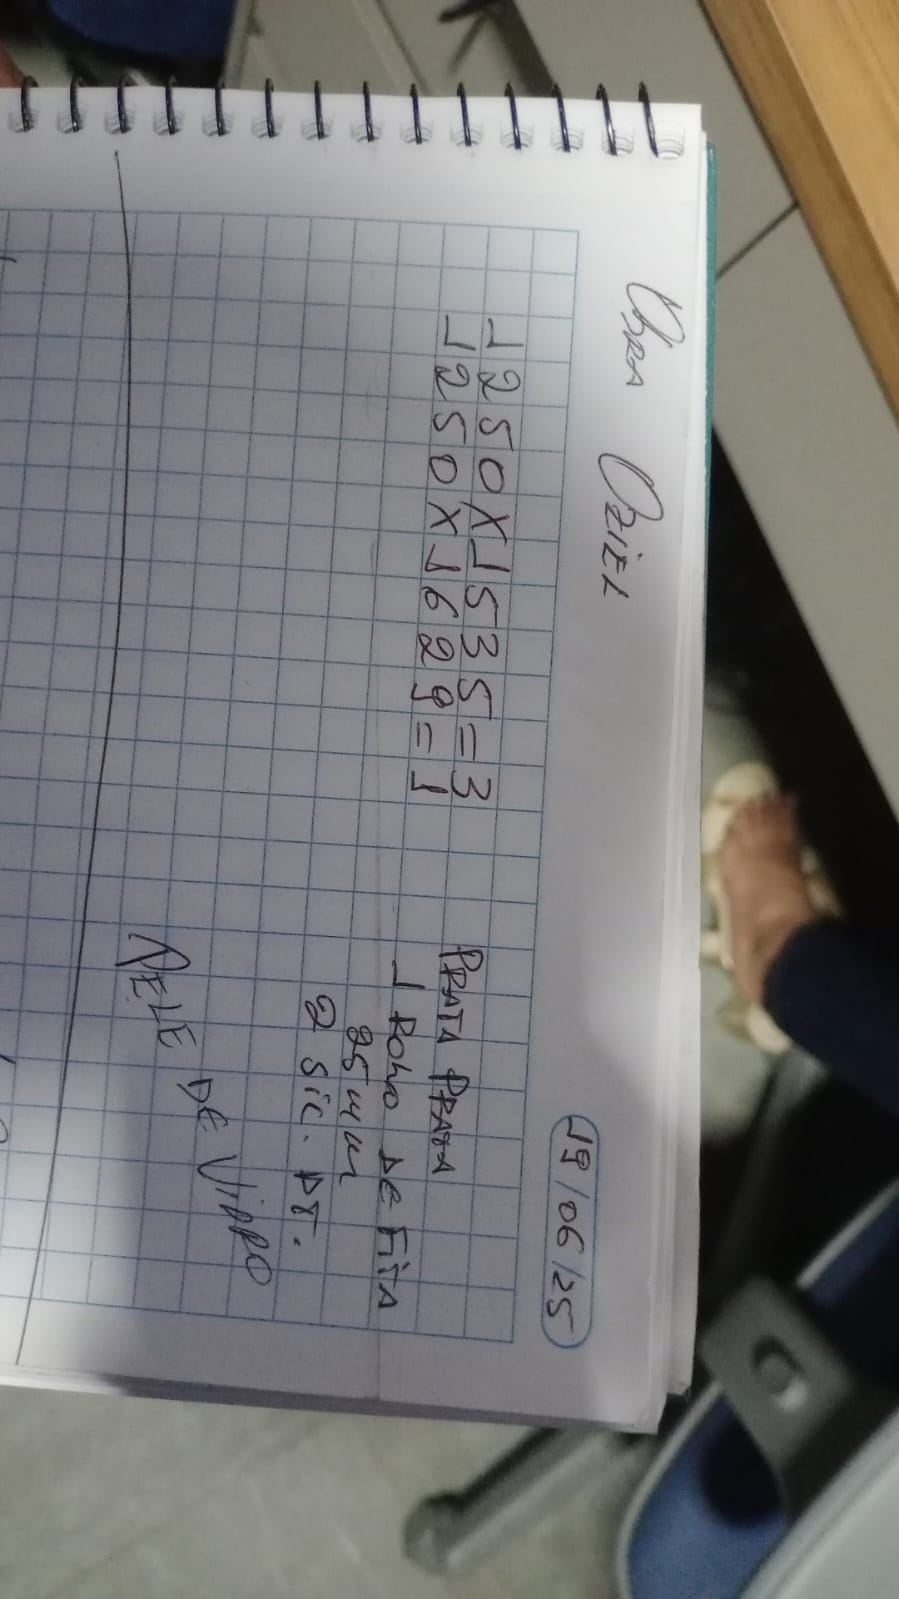 Obra Oziel
19/06/25
1250x1535=3
1250x1629=1
Prata Prata
1 Rolo de Fita
25mm
2 Sil. PT.
Pele de Vidro